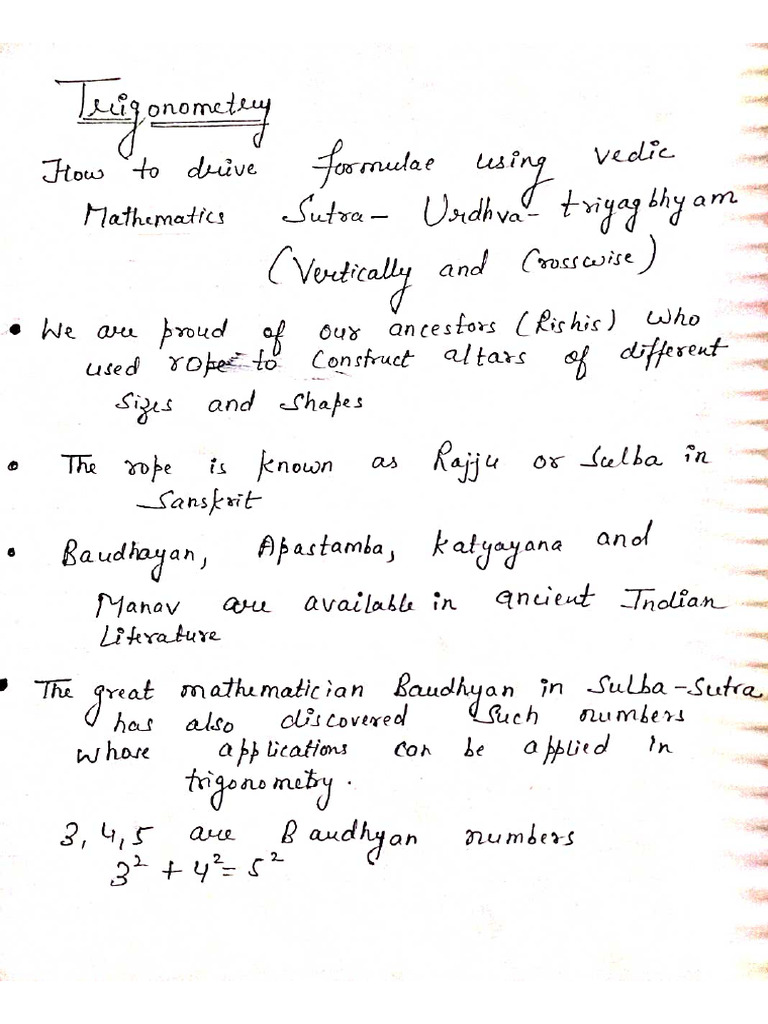 Trigonometry
How to drive formulae using vedic
Mathematics Sutra- Urdhva-triyagbhyam
(Vertically and Crosswise)
• We are proud of our ancestors (Rishis) who
used rope to construct altars of different
sizes and shapes
• The rope is known as Rajju or Sulba in
Sanskrit
• Baudhayan, Apastamba, Katyayana and
Manav are available in ancient Indian
Literature
• The great mathematician Baudhyan in Sulba-Sutra
has also discovered such numbers
whose applications can be applied in
trigonometry.
3, 4, 5 are Baudhyan numbers
3² + 4² = 5²